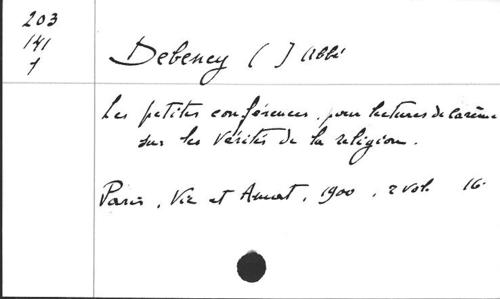 203
141
1
Debeney ( ) abbé
Les petites conférences pour lectures de carême
sur les vérités de la religion.
Paris, Vic et Amat, 1900, 2 vol. 16